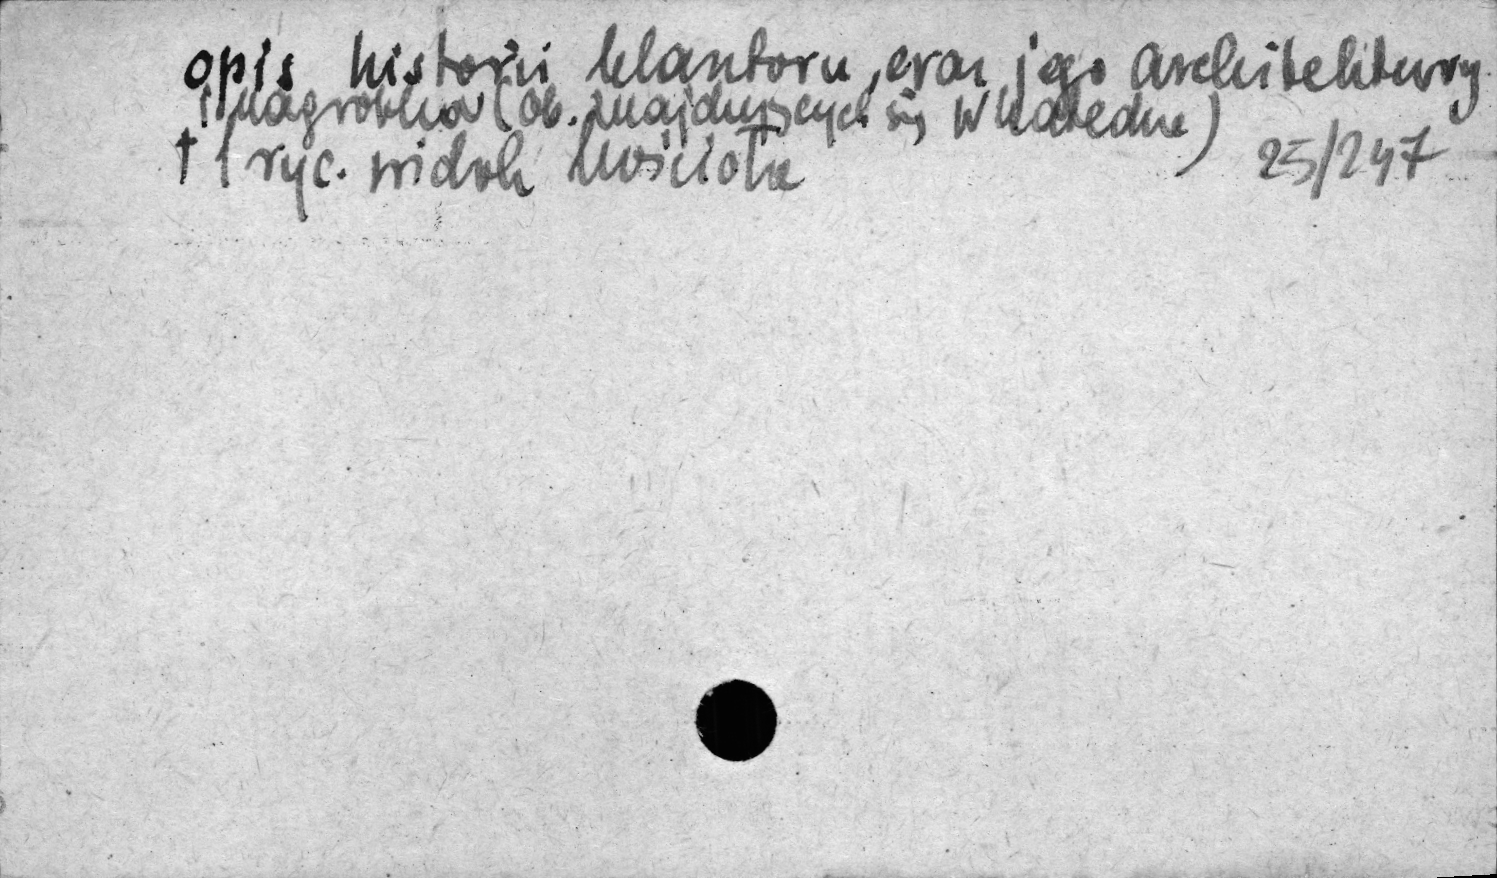 opis historii klasztoru, oraz jego architektury
i nagrobków (ob. znajdujących się w katedrze)
† 1 ryc. widok kościoła 25/247